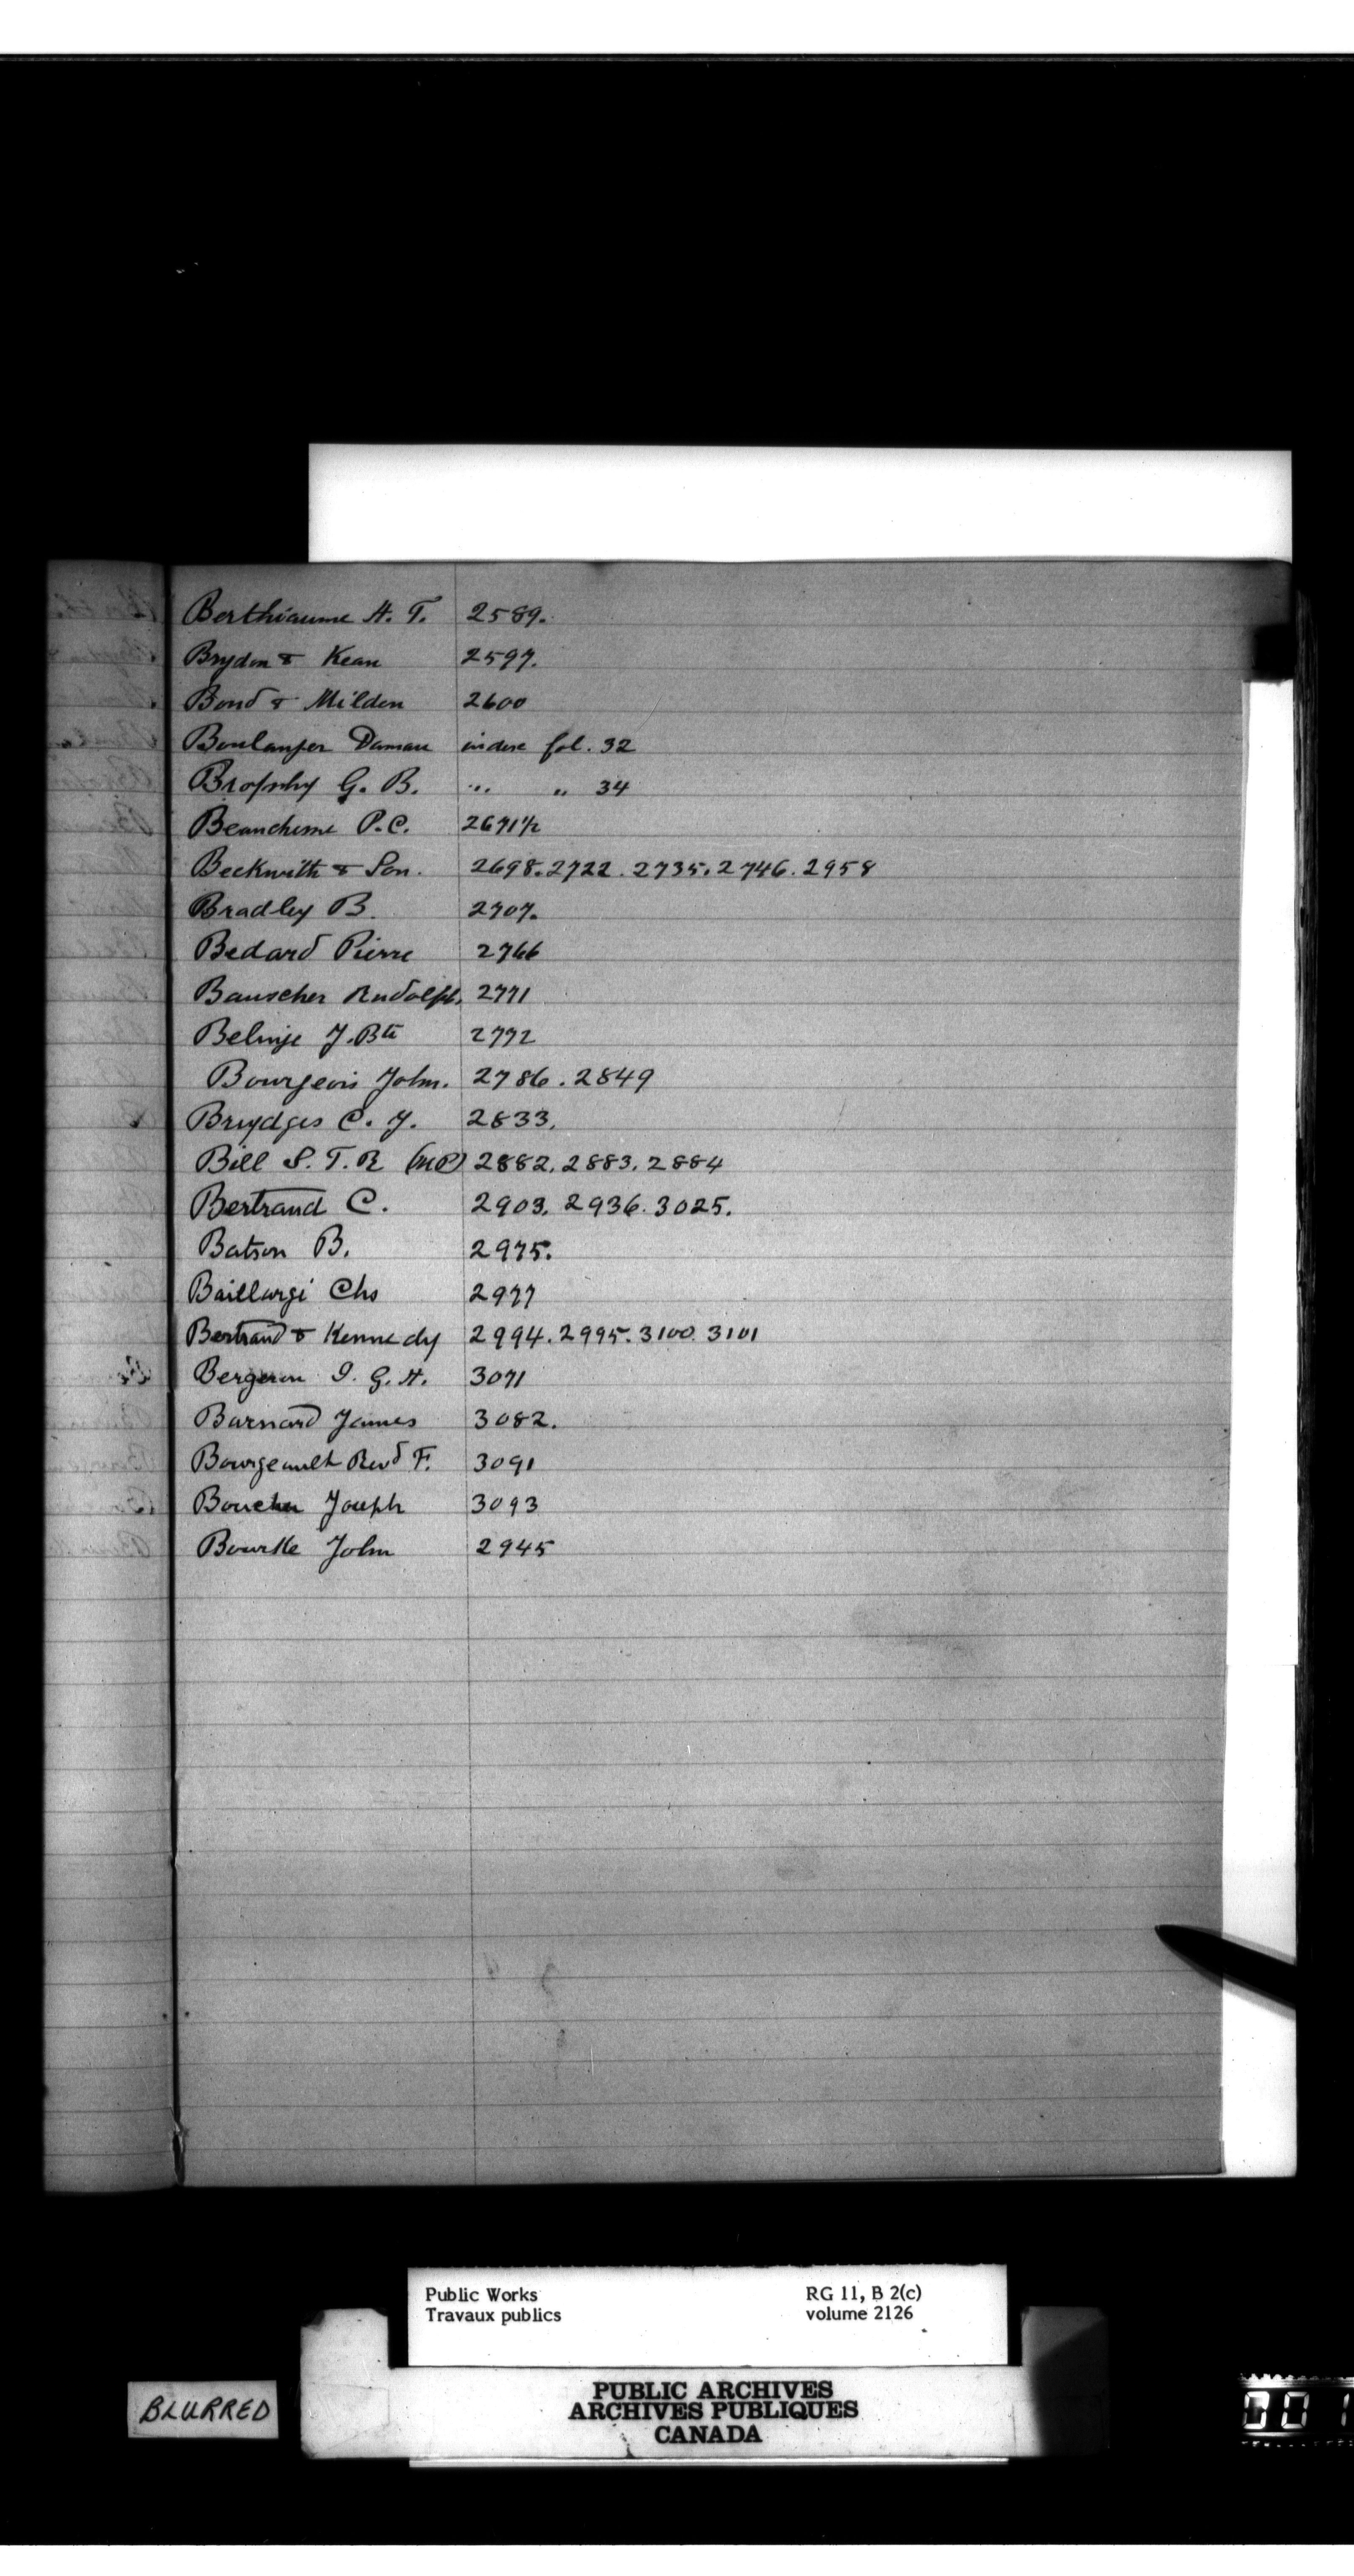 Berthiaume H. T. 2589.
Brydon & Kean 2597.
Bond & Milden 2600
Boulanger Damase index fol. 32
Brophy G. B. " " 34
Beauchesne P. C. 2671½
Beckwith & Son. 2698. 2722. 2735. 2746. 2958
Bradley B. 2707.
Bedard Pierre 2766
Bauscher Rudolph. 2771
J. Bte 2772
Bourgeois John. 2786. 2849
Brydges C. J. 2833.
Bill S. T. R (MP) 2882. 2883. 2884
Bertrand C. 2903. 2936. 3025.
Batson B. 2975.
Baillargé Chs 2977
Bertrand & Kennedy 2994. 2995. 3100. 3101
Bergeron I. G. H. 3071
Barnard James 3082.
Bourgeault Revd F. 3091
Boucher Joseph 3093
Bourke John 2945
Public Works RG 11, B 2(c)
Travaux publics volume 2126
BLURRED
PUBLIC ARCHIVES
ARCHIVES PUBLIQUES
CANADA
001